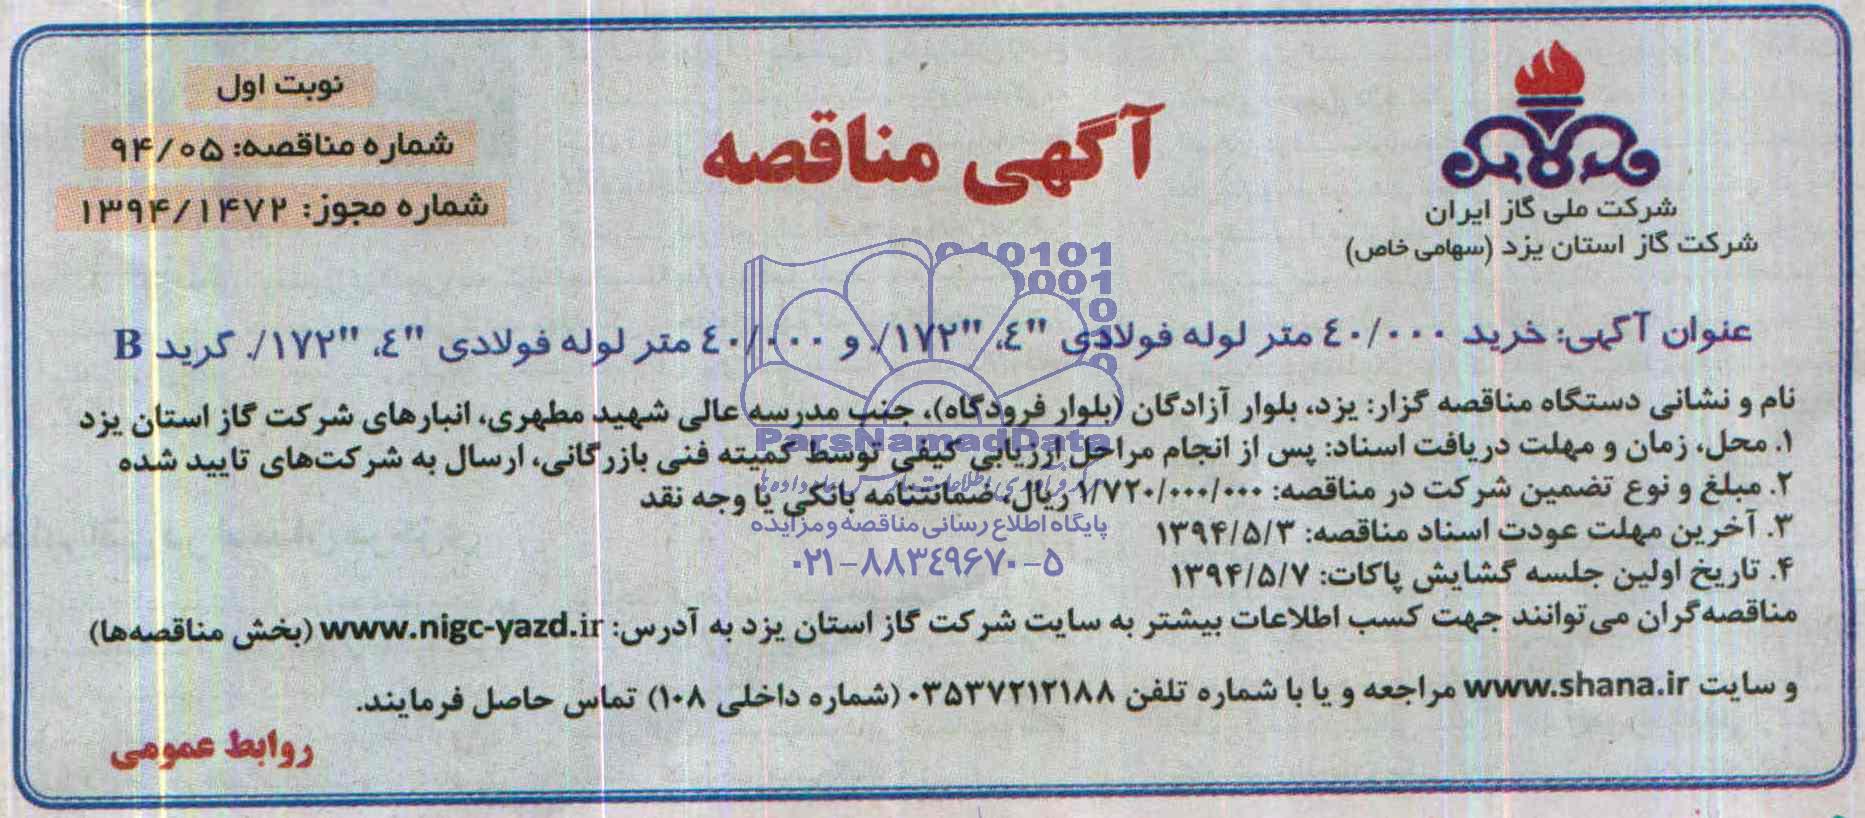 نوبت اول
شماره مناقصه: ۹۴/۰۵
شماره مجوز: ۱۳۹۴/۱۴۷۲
آگهی مناقصه
شرکت ملی گاز ایران
شرکت گاز استان یزد (سهامی خاص)
عنوان آگهی: خرید ۴۰/۰۰۰ متر لوله فولادی "۴، "۱۷۲/. و ۴۰/۰۰۰ متر لوله فولادی "۴، "۱۷۲/. گرید B
نام و نشانی دستگاه مناقصه گزار: یزد، بلوار آزادگان (بلوار فرودگاه)، جنب مدرسه عالی شهید مطهری، انبارهای شرکت گاز استان یزد
۱. محل، زمان و مهلت دریافت اسناد: پس از انجام مراحل ارزیابی کیفی توسط کمیته فنی بازرگانی، ارسال به شرکت‌های تایید شده
۲. مبلغ و نوع تضمین شرکت در مناقصه: ۱/۷۲۰/۰۰۰/۰۰۰ ریال، ضمانتنامه بانکی یا وجه نقد
۳. آخرین مهلت عودت اسناد مناقصه: ۱۳۹۴/۵/۳
۴. تاریخ اولین جلسه گشایش پاکات: ۱۳۹۴/۵/۷
مناقصه‌گران می‌توانند جهت کسب اطلاعات بیشتر به سایت شرکت گاز استان یزد به آدرس: www.nigc-yazd.ir (بخش مناقصه‌ها)
و سایت www.shana.ir مراجعه و یا با شماره تلفن ۰۳۵۳۷۲۱۲۱۸۸ (شماره داخلی ۱۰۸) تماس حاصل فرمایند.
روابط عمومی
ParsNamadData
پایگاه اطلاع رسانی مناقصه و مزایده
۰۲۱-۸۸۳۴۹۶۷۰-۵